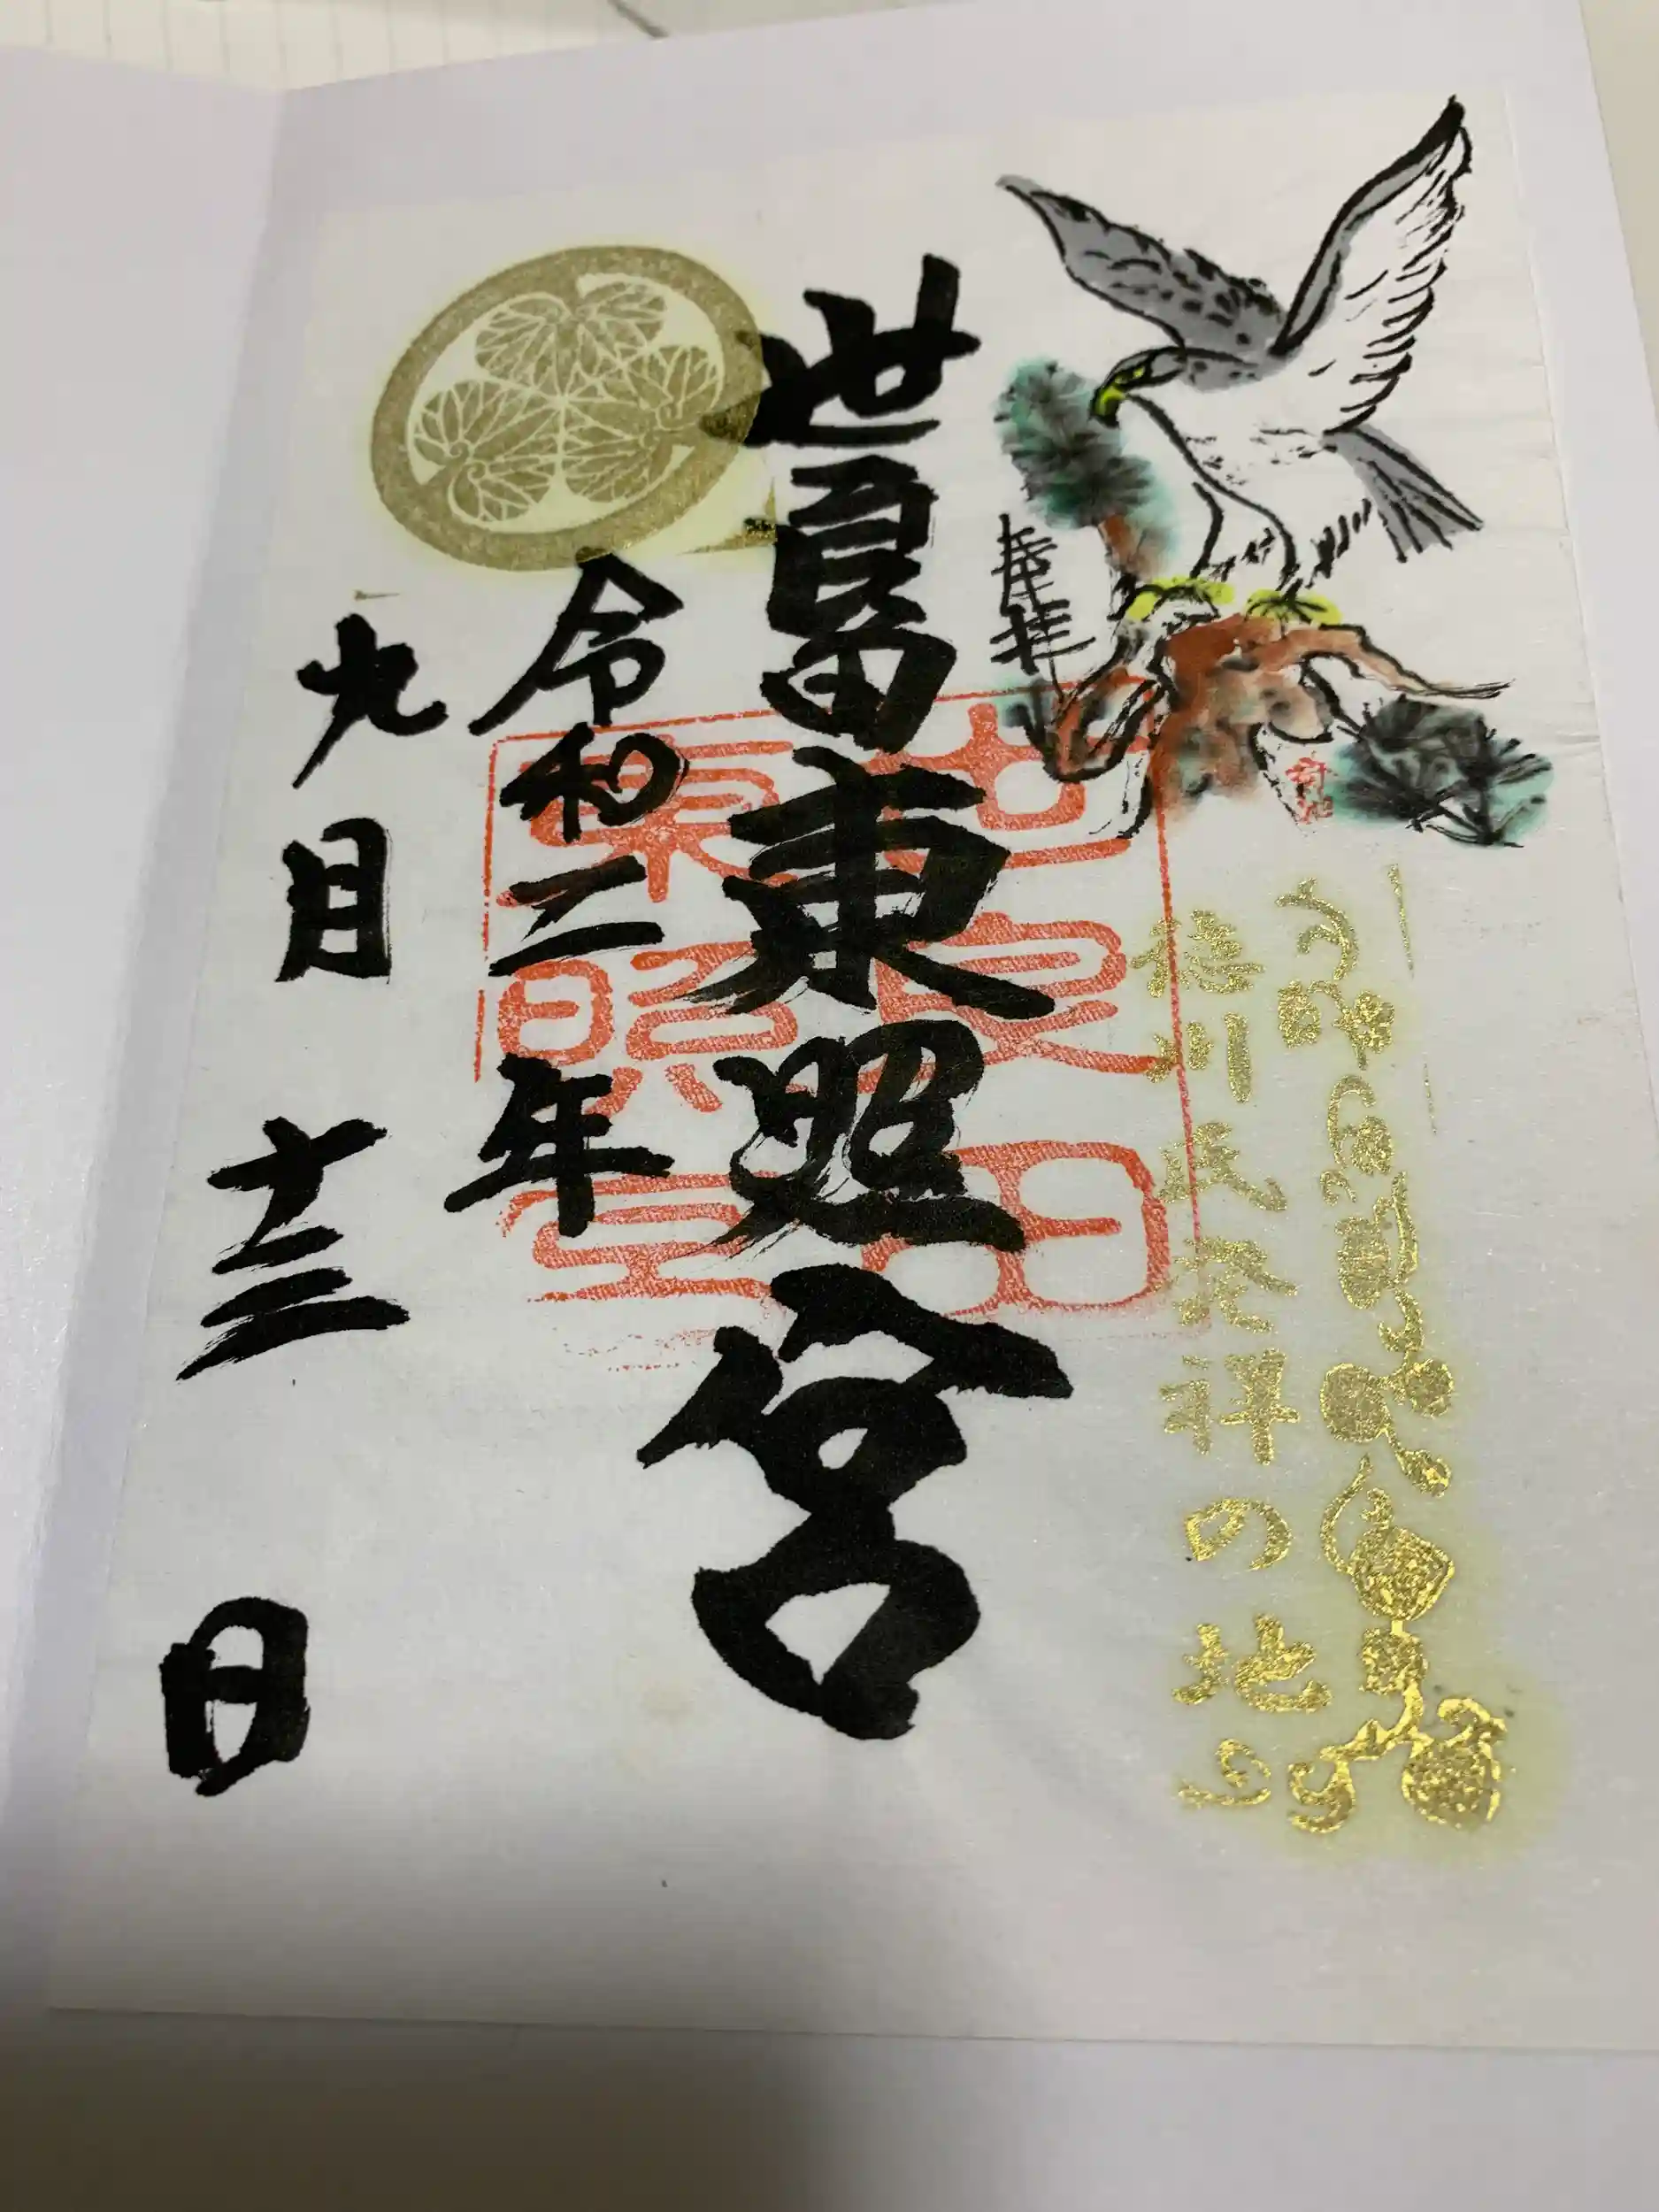 奉拝
徳川氏発祥の地
世良田東照宮
世良田
東照宮
令和二年
九月十三日